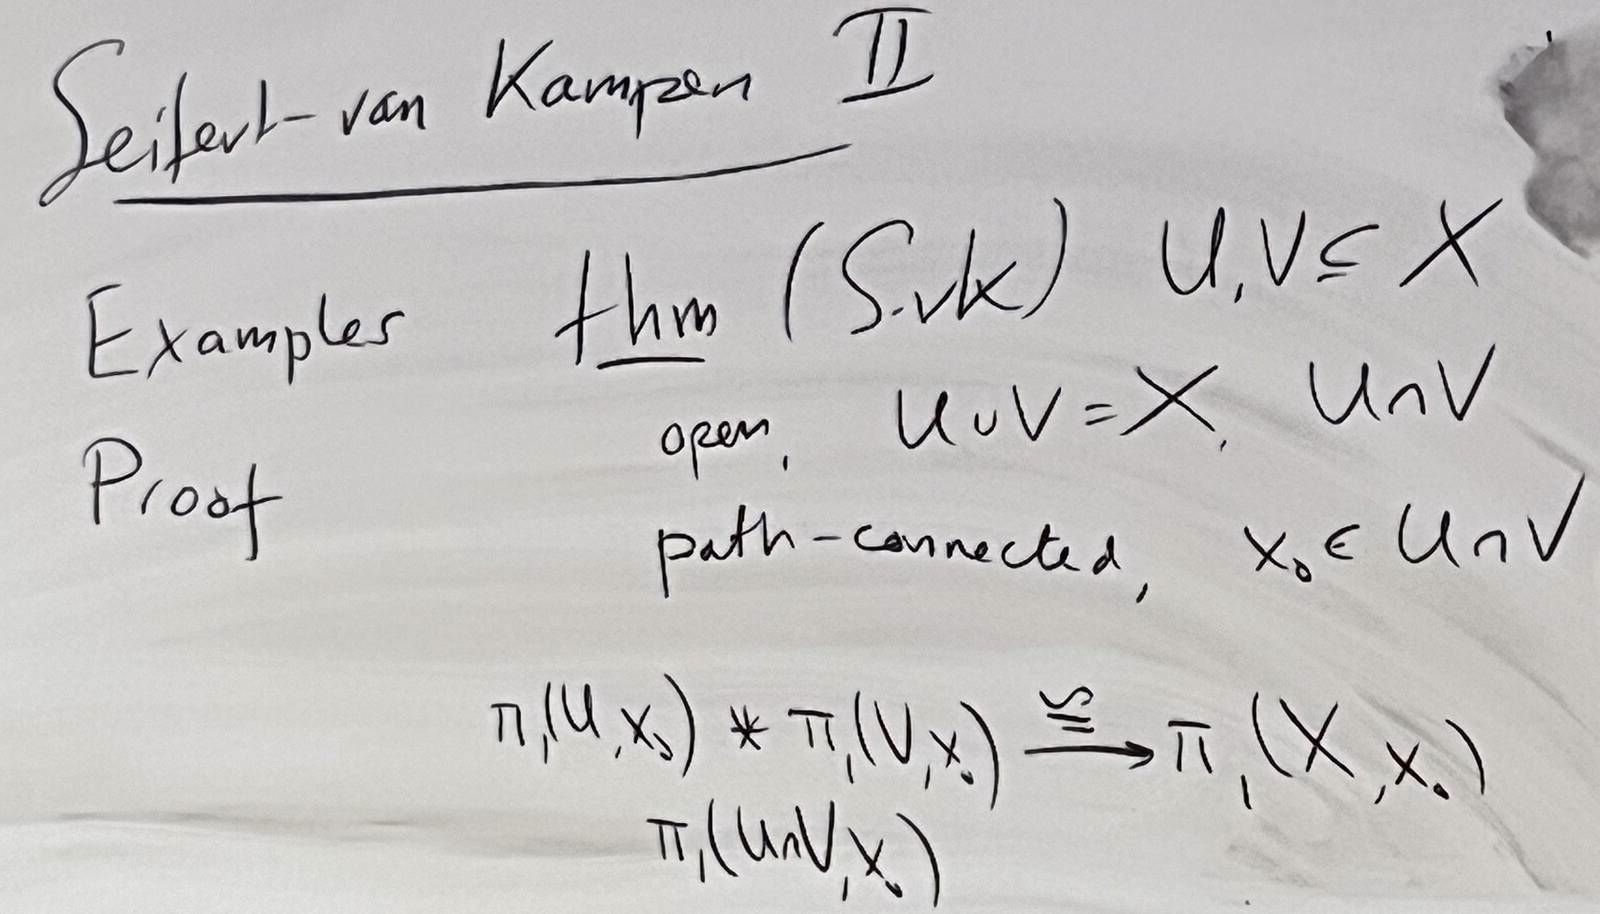 Seifert-van Kampen II
Examples
Proof
thm (S.vK) U, V ⊆ X
open, U ∪ V = X, U ∩ V
path-connected, x₀ ∈ U ∩ V
π₁(U, x₀) * π₁(V, x₀) ≅→ π₁(X, x₀)
π₁(U∩V, x₀)